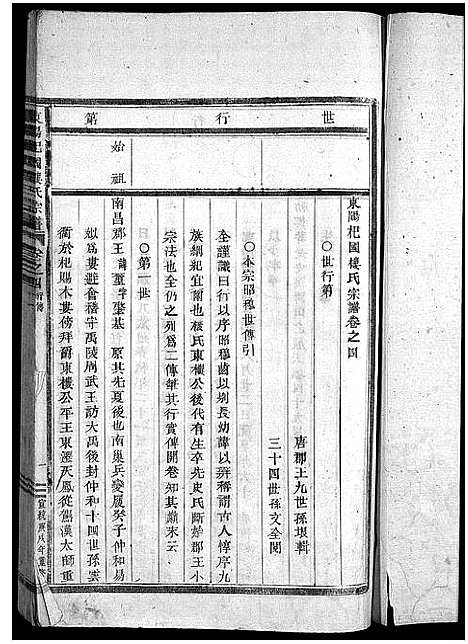 世行第
始祖
東陽杞國樓氏宗譜卷之四
〇世行第
唐郡王九世孫垠輯
三十四世孫文全閱
〇本宗昭穆世傳引
全謹識曰行以序昭穆齒以別長幼諱以辨稱謂古人惇序九
族綱紀宜爾也樓氏東樓公後代有生卒先史氏斷始郡王小
宗法也全仍之列爲工傳華其行實傳開卷知其顚末云
〇第一世
南昌郡王 肇基 原其先夏後也南巢兵變履癸子仲和易
姒爲婁避會稽守禹陵周武王訪大禹後封仲和十四世孫
衢於杞賜木婁傍拜爵東樓公平王東遷天風從儒漢太師重
東陽杞國樓氏宗譜 卷之四 行傳 一